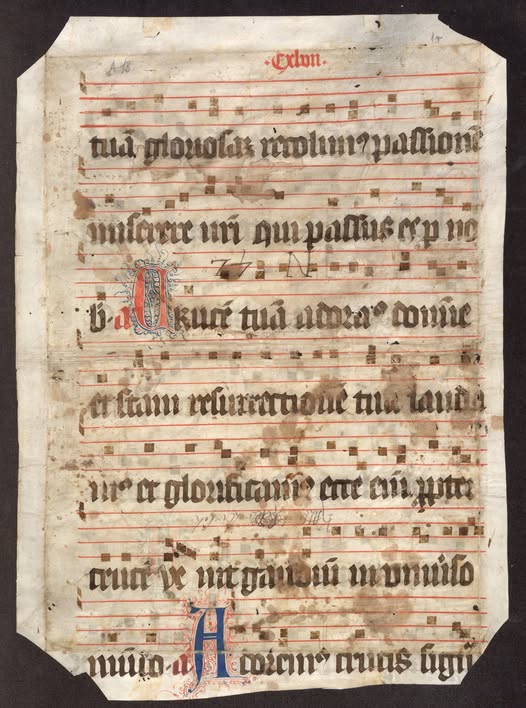 A 18
·Cxlvii·
tuā gloriosaz recolimꝰ passionē
miserere nr̄i qui passus es p no
b̄ a Crucē tuā adoramꝰ domīe
et scām resurrectionē tuā lauda
mꝰ et glorificamꝰ ecce eni ꝓpter
crucē ve nit gaudiū in vniuiso
mūdo a Adoremꝰ crucis signū